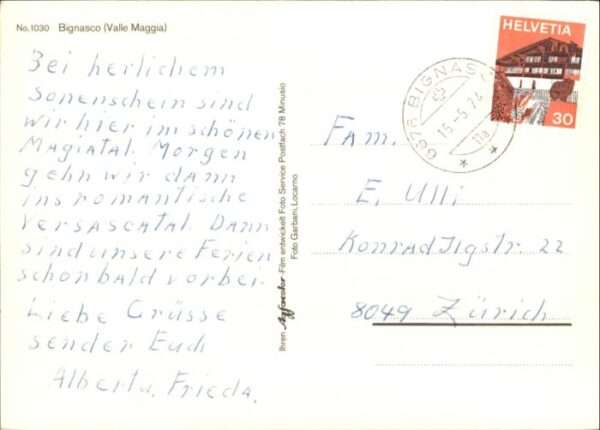 No.1030 Bignasco (Valle Maggia)
Bei herlichem
Sonenschein sind
wir hier im schönen
Magiatal. Morgen
gehn wir dann
ins romantische
Versascatal. Dann
sind unsere Ferien
schonbald vorbei.
Liebe Grüsse
sender Euch
Albert u. Frieda.
Ihren Agfacolor-Film entwickelt Foto Service Postfach 78 Minusio
Foto Garbani, Locarno
6676 BIGNASCO
15.-5.74
11a
HELVETIA
30
Fam.
E. Ulli
Konrad Ilgstr. 22
8049 Zürich